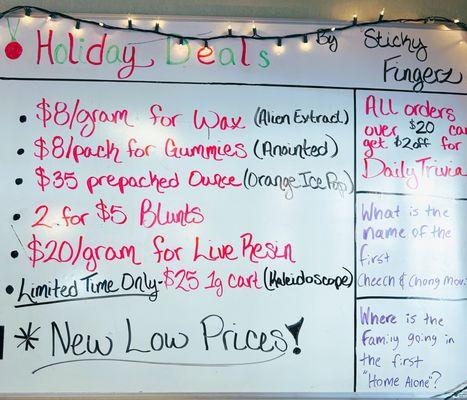 Holiday Deals By Sticky Fingerz
• $8/gram for Wax (Alien Extract)
• $8/pack for Gummies (Anointed)
• $35 prepacked Ounce (Orange Ice Pop)
• 2 for $5 Blunts
• $20/gram for Live Resin
• Limited Time Only - $25 1g cart (Kaleidoscope)
* New Low Prices!
All orders
over $20 can
get $2 off for
Daily Trivia
What is the
name of the
first
Cheech & Chong
Where is the
family going in
the first
"Home Alone"?